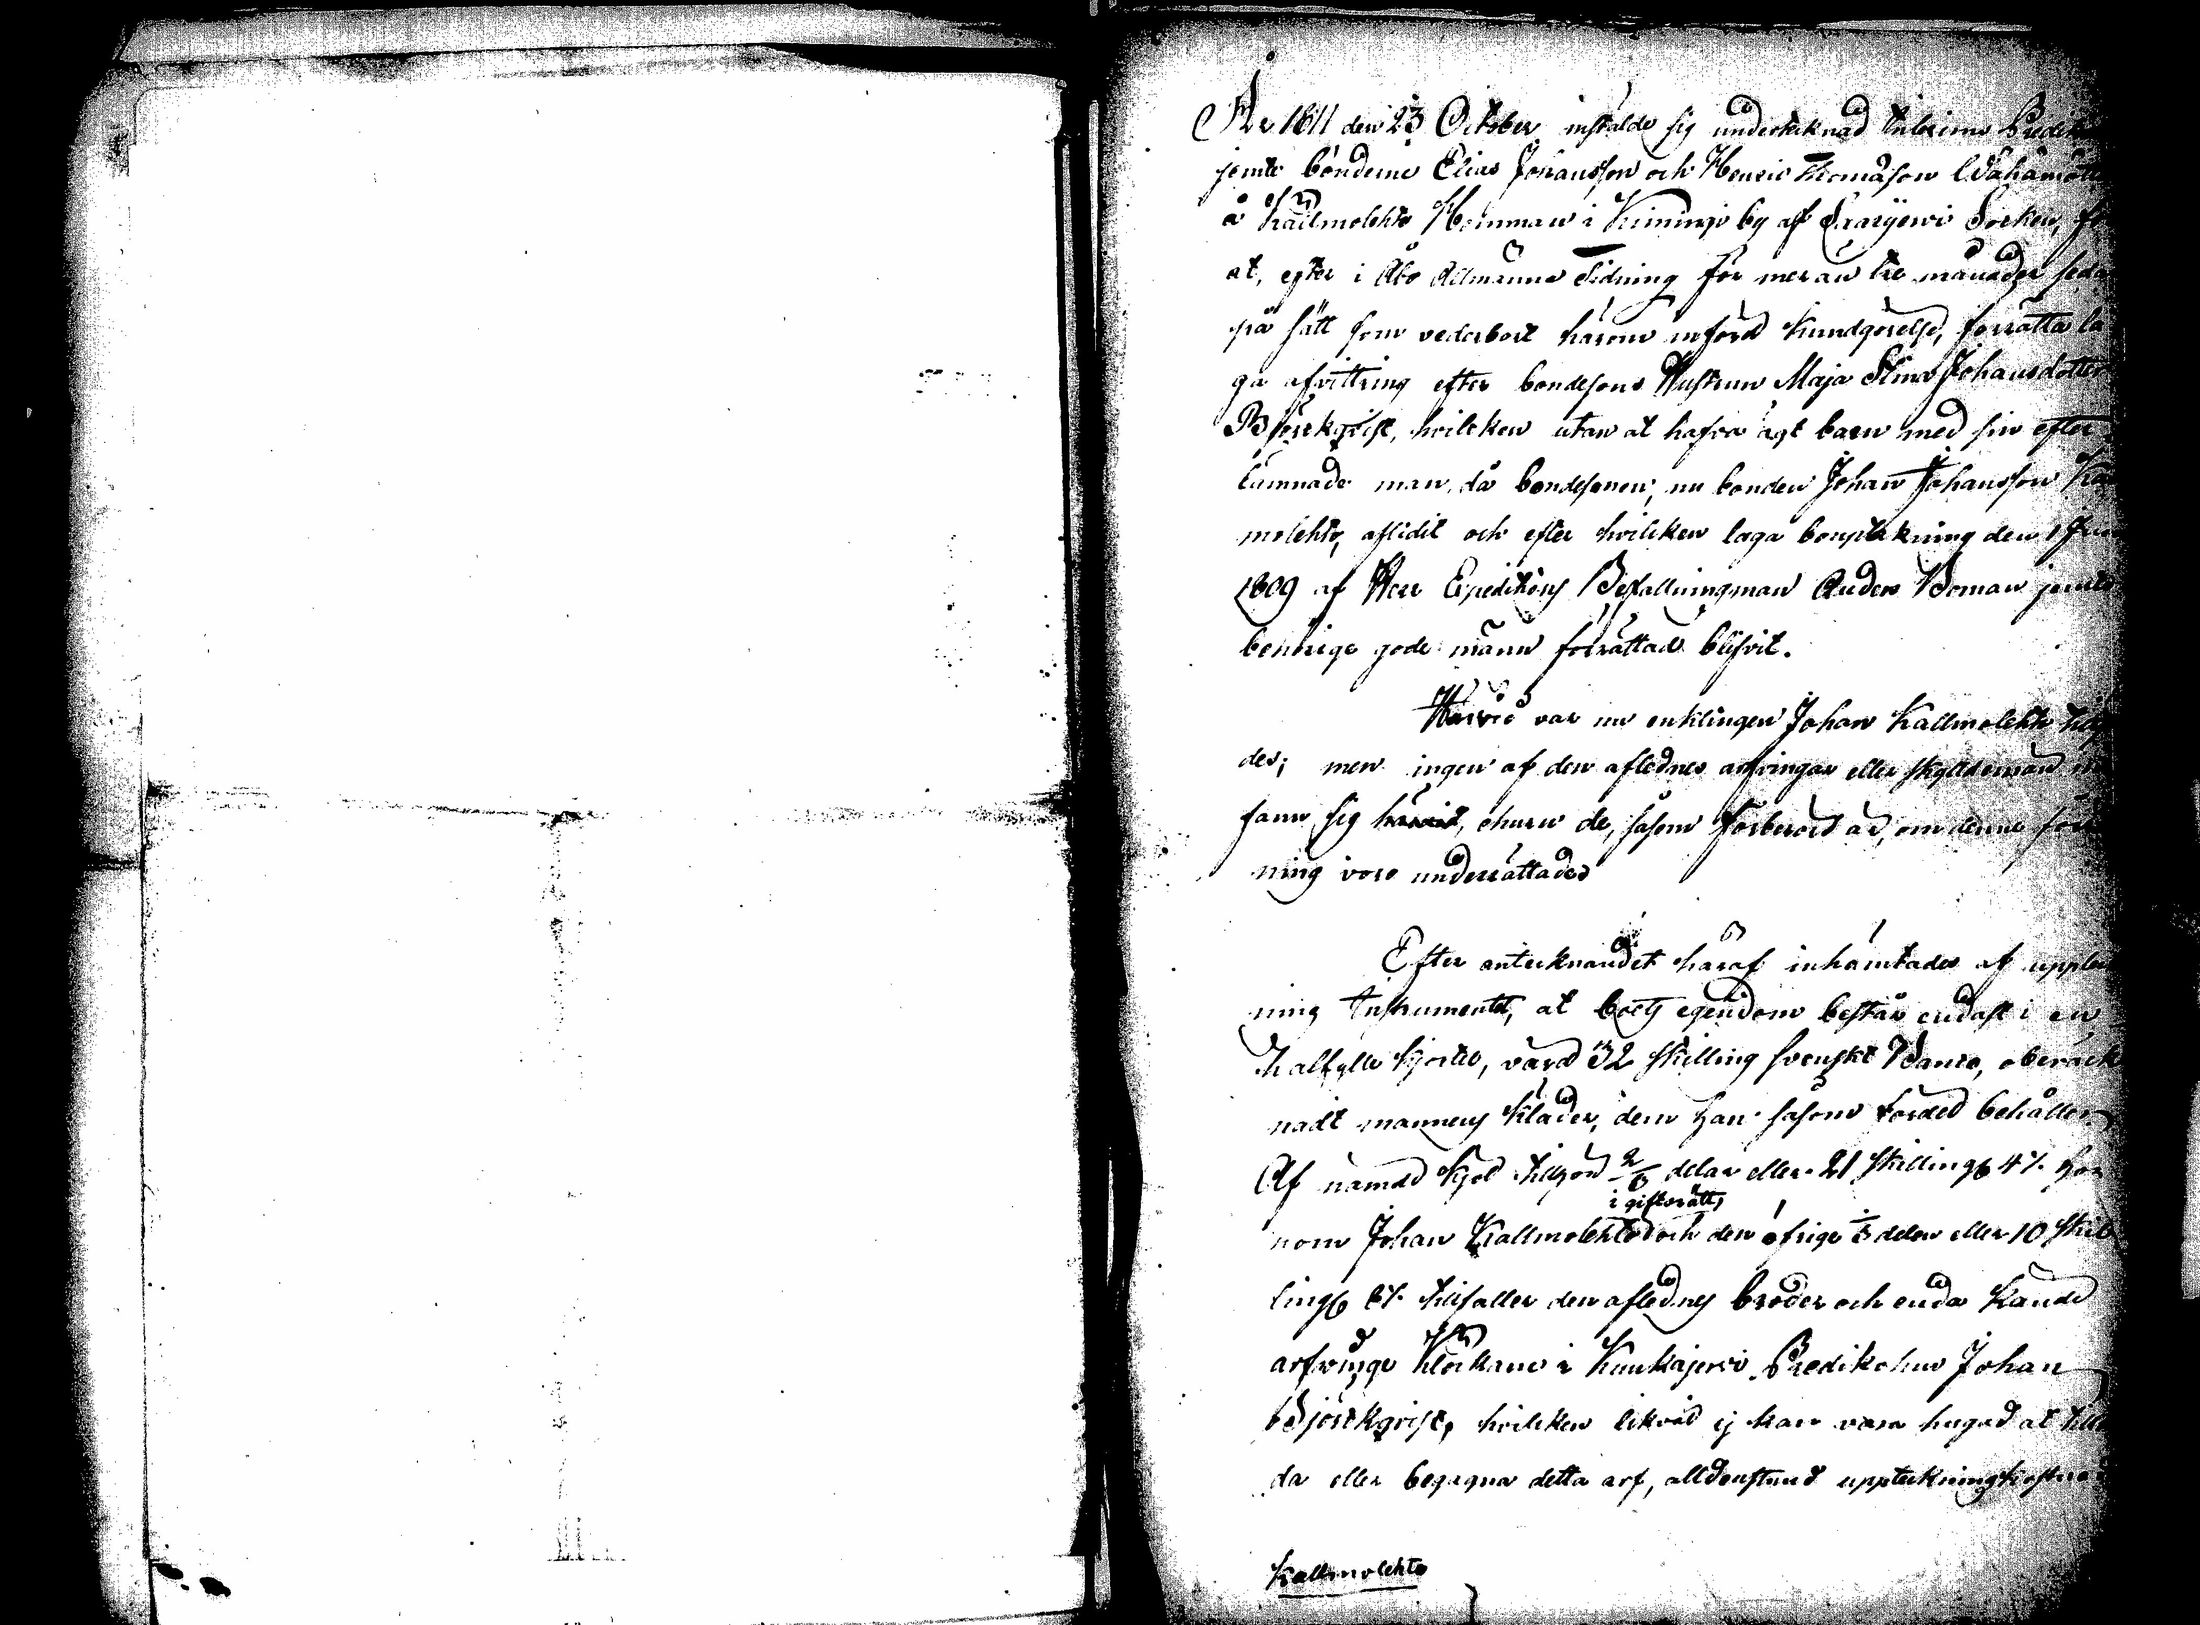 År 1811 den 23 October instälde sig undertecknad Interims
jemte bönderne Elias Johansson och Henric Thomasson
å Kallmolehto Hemman i Kiminge by af Saarijerwi Sockn,
at, efter i Åbo Allmänna Tidning för mer än tre månader
på sätt som vederbort härom införd Kundgörelse, förrätta la
ga afvittring efter bondesons Hustrun Maja Stina Johansdotter
Björckqvist, hvilcken utan at hafva ägt barn med sin efter
lämnade man, då bondesonen, nu bonden Johan Johansson
molehto, aflidit och efter hvilcken laga bouptekning den 1
1809 af Herr Expeditions Befallningman Anders Boman jemte
behörige gode männ förrättad blifvit.
Härvid var nu enklingen Johan Kallmolehto
des; men ingen af den aflednes arfvingar eller skyldemän
fann sig härvid, ehuru de, såsom förberört är, om denne för
ning voro underrättades
Efter antecknandet häraf inhämtades af
ning Instrumentet, at boets egendom består endast i en
halfylle kjortel, värd 32 skilling svenskt Banco, oberäck
nadt mannens kläder, dem han såsom förded behåller.
Af nämde kjol tillhör 2/3 delar eller 21 skillingar 4 r. ho
i giftorätt,
nom Johan Kallmolehto och den öfrige 1/3 delen eller 10 skil
lingar 8 r. tillfaller den aflednes broder och enda kände
arfvinge Klockaren i Kuukajervi Predikohus Johan
Björckqvist, hvilcken likväl ej kan vara hugad at
da eller begagna detta arf, alldenstund
Kallmolehto